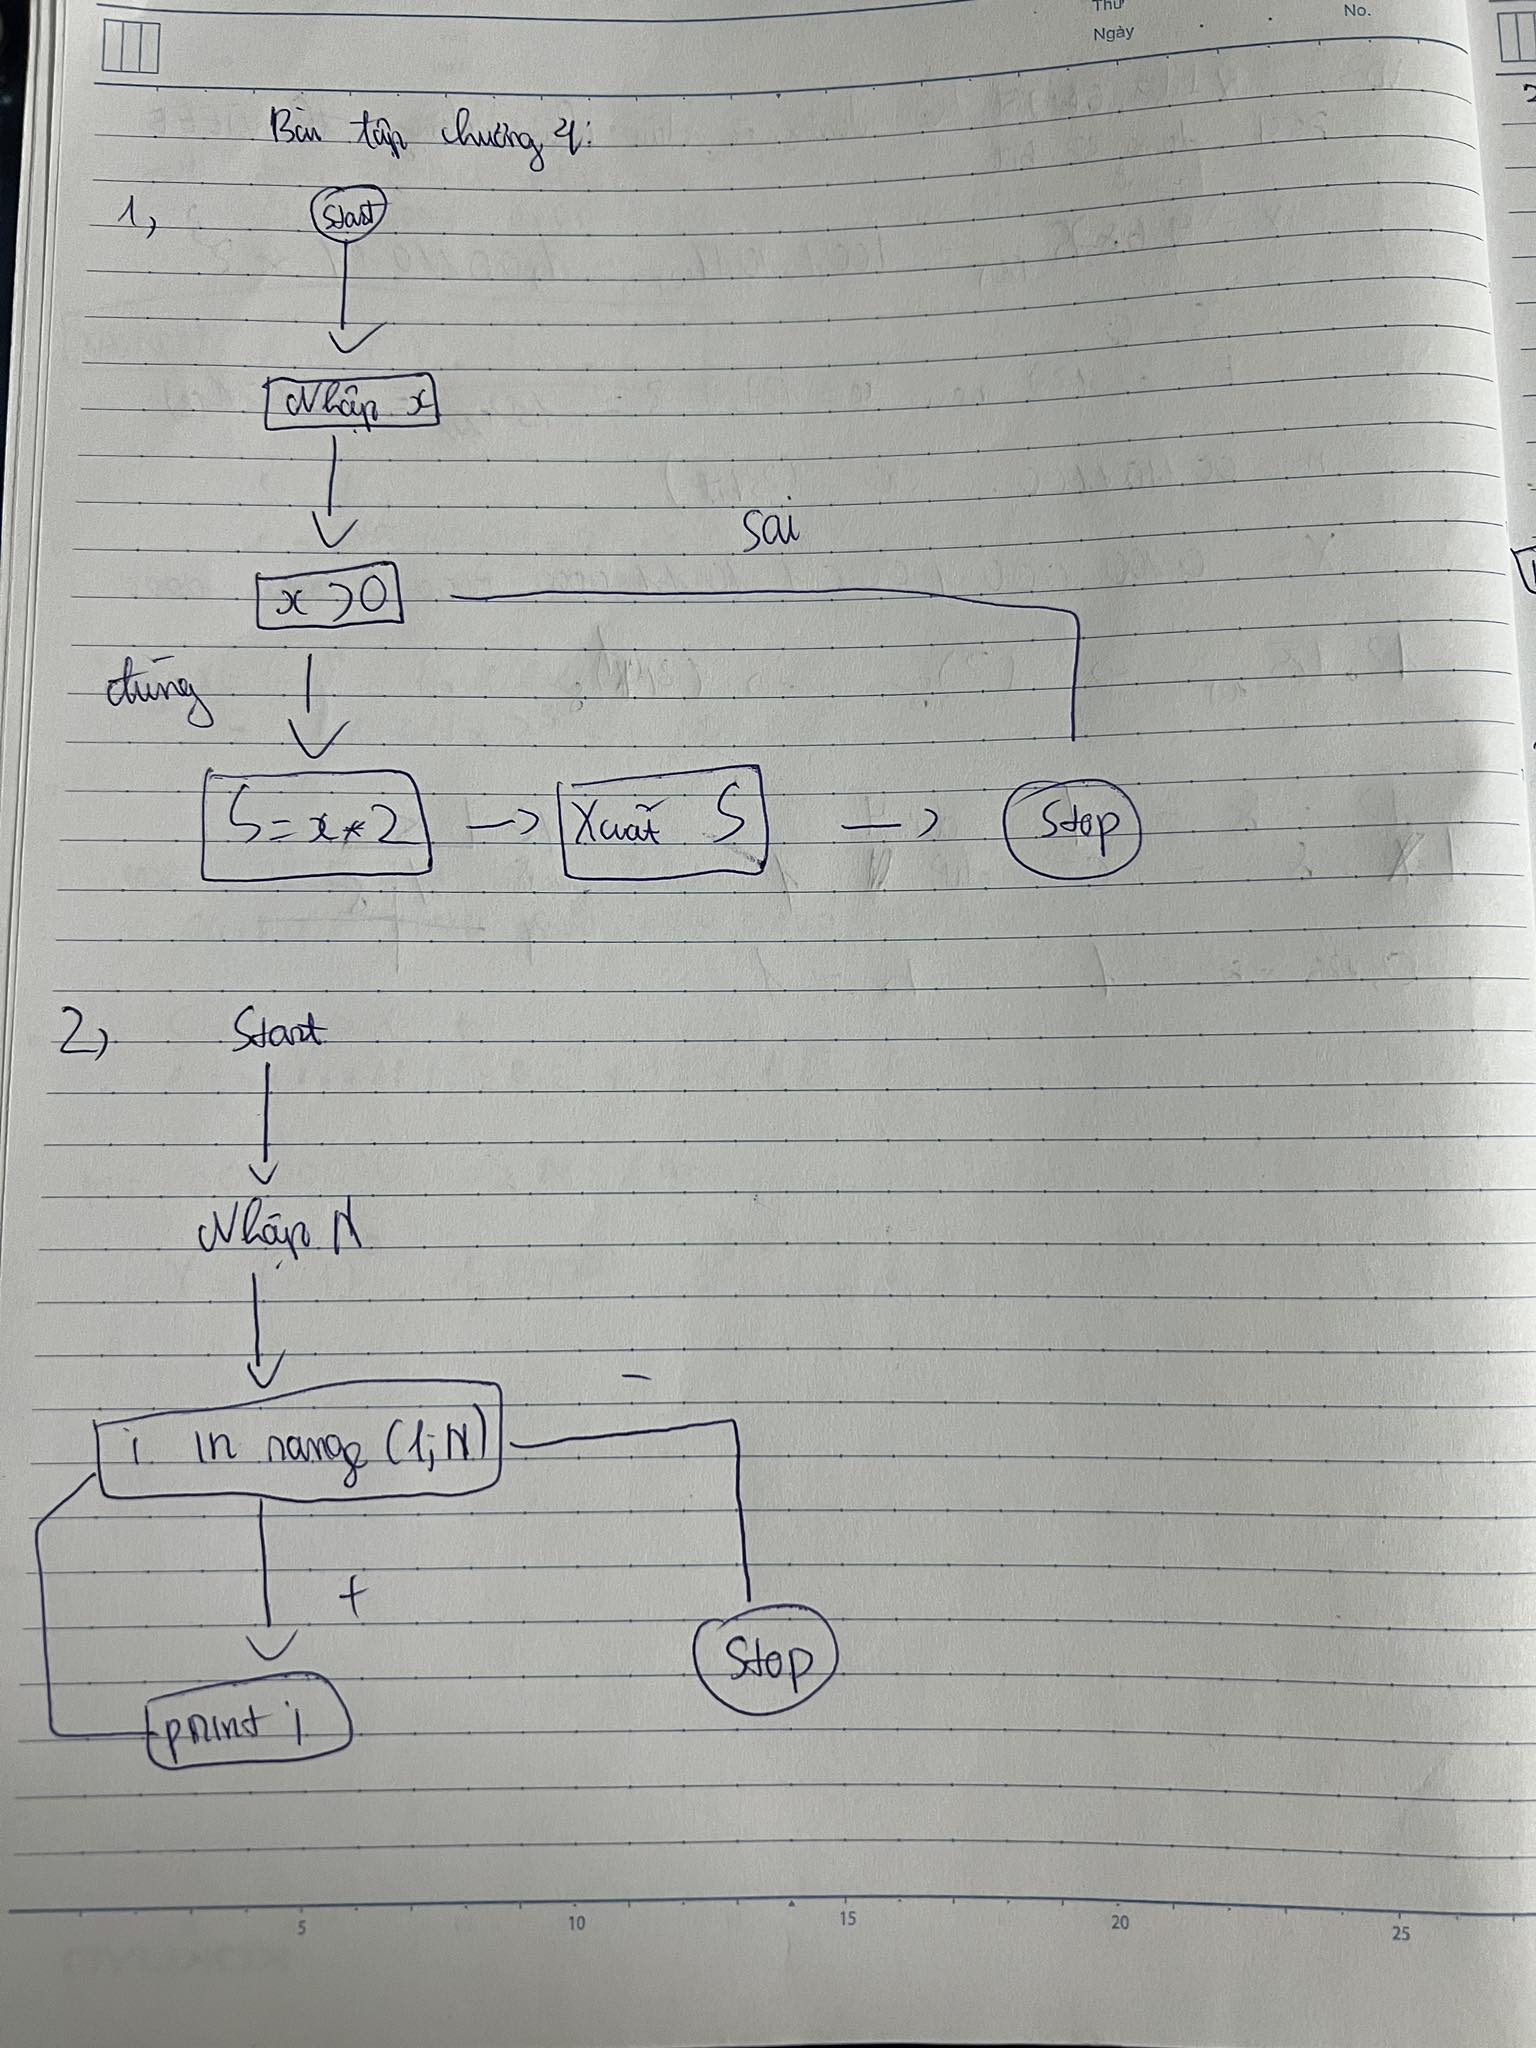 Thứ
Ngày
No.
Bài tập chương 4:
1,
Start
Nhập x
x > 0
sai
đúng
S = x * 2
Xuất S
Stop
2,
Start
Nhập N
i in range (1; N)
-
+
print i
Stop
5 10 15 20 25